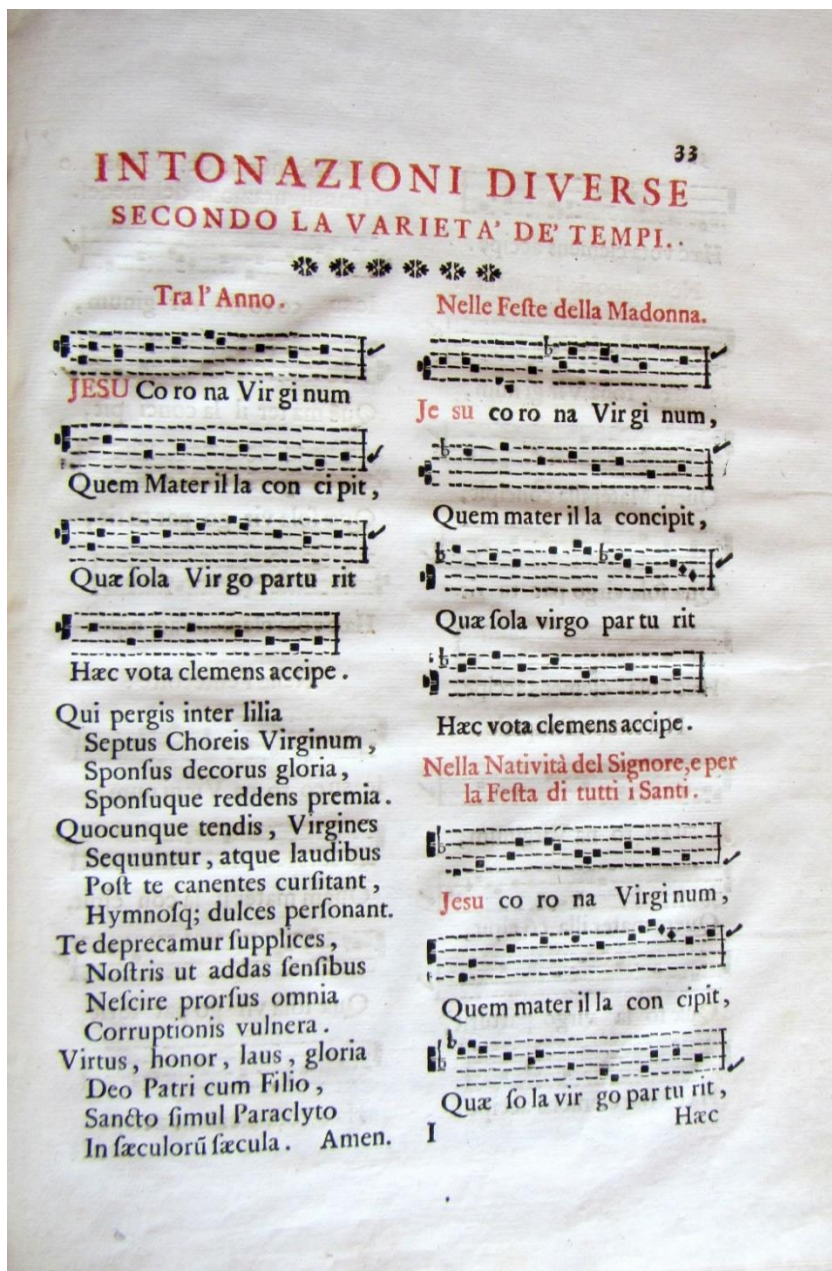 33
INTONAZIONI DIVERSE
SECONDO LA VARIETA' DE' TEMPI..
Tra l' Anno.
JESU Co ro na Vir gi num
Quem Mater il la con ci pit,
Quæ ſola Vir go partu rit
Hæc vota clemens accipe.
Qui pergis inter lilia
Septus Choreis Virginum,
Sponſus decorus gloria,
Sponſuque reddens premia.
Quocunque tendis, Virgines
Sequuntur, atque laudibus
Poſt te canentes curſitant,
Hymnoſq; dulces perſonant.
Te deprecamur ſupplices,
Noſtris ut addas ſenſibus
Neſcire prorſus omnia
Corruptionis vulnera.
Virtus, honor, laus, gloria
Deo Patri cum Filio,
Sancto ſimul Paraclyto
In ſæculorũ ſæcula. Amen.
Nelle Feſte della Madonna.
Je su co ro na Vir gi num,
Quem mater il la concipit,
Quæ ſola virgo par tu rit
Hæc vota clemens accipe.
Nella Natività del Signore, e per
la Feſta di tutti i Santi.
Jesu co ro na Virgi num,
Quem mater il la con cipit,
Quæ ſo la vir go par tu rit,
Hæc
I